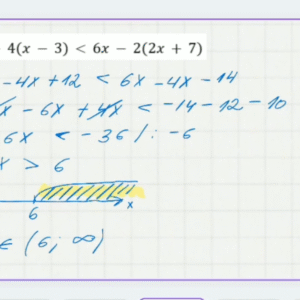 4(x − 3) < 6x − 2(2x + 7)
-4x + 12 < 6x - 4x - 14
x - 6x + 4x < -14 - 12 - 10
6x < -36 /: -6
x > 6
6 x
∈ (6; ∞)